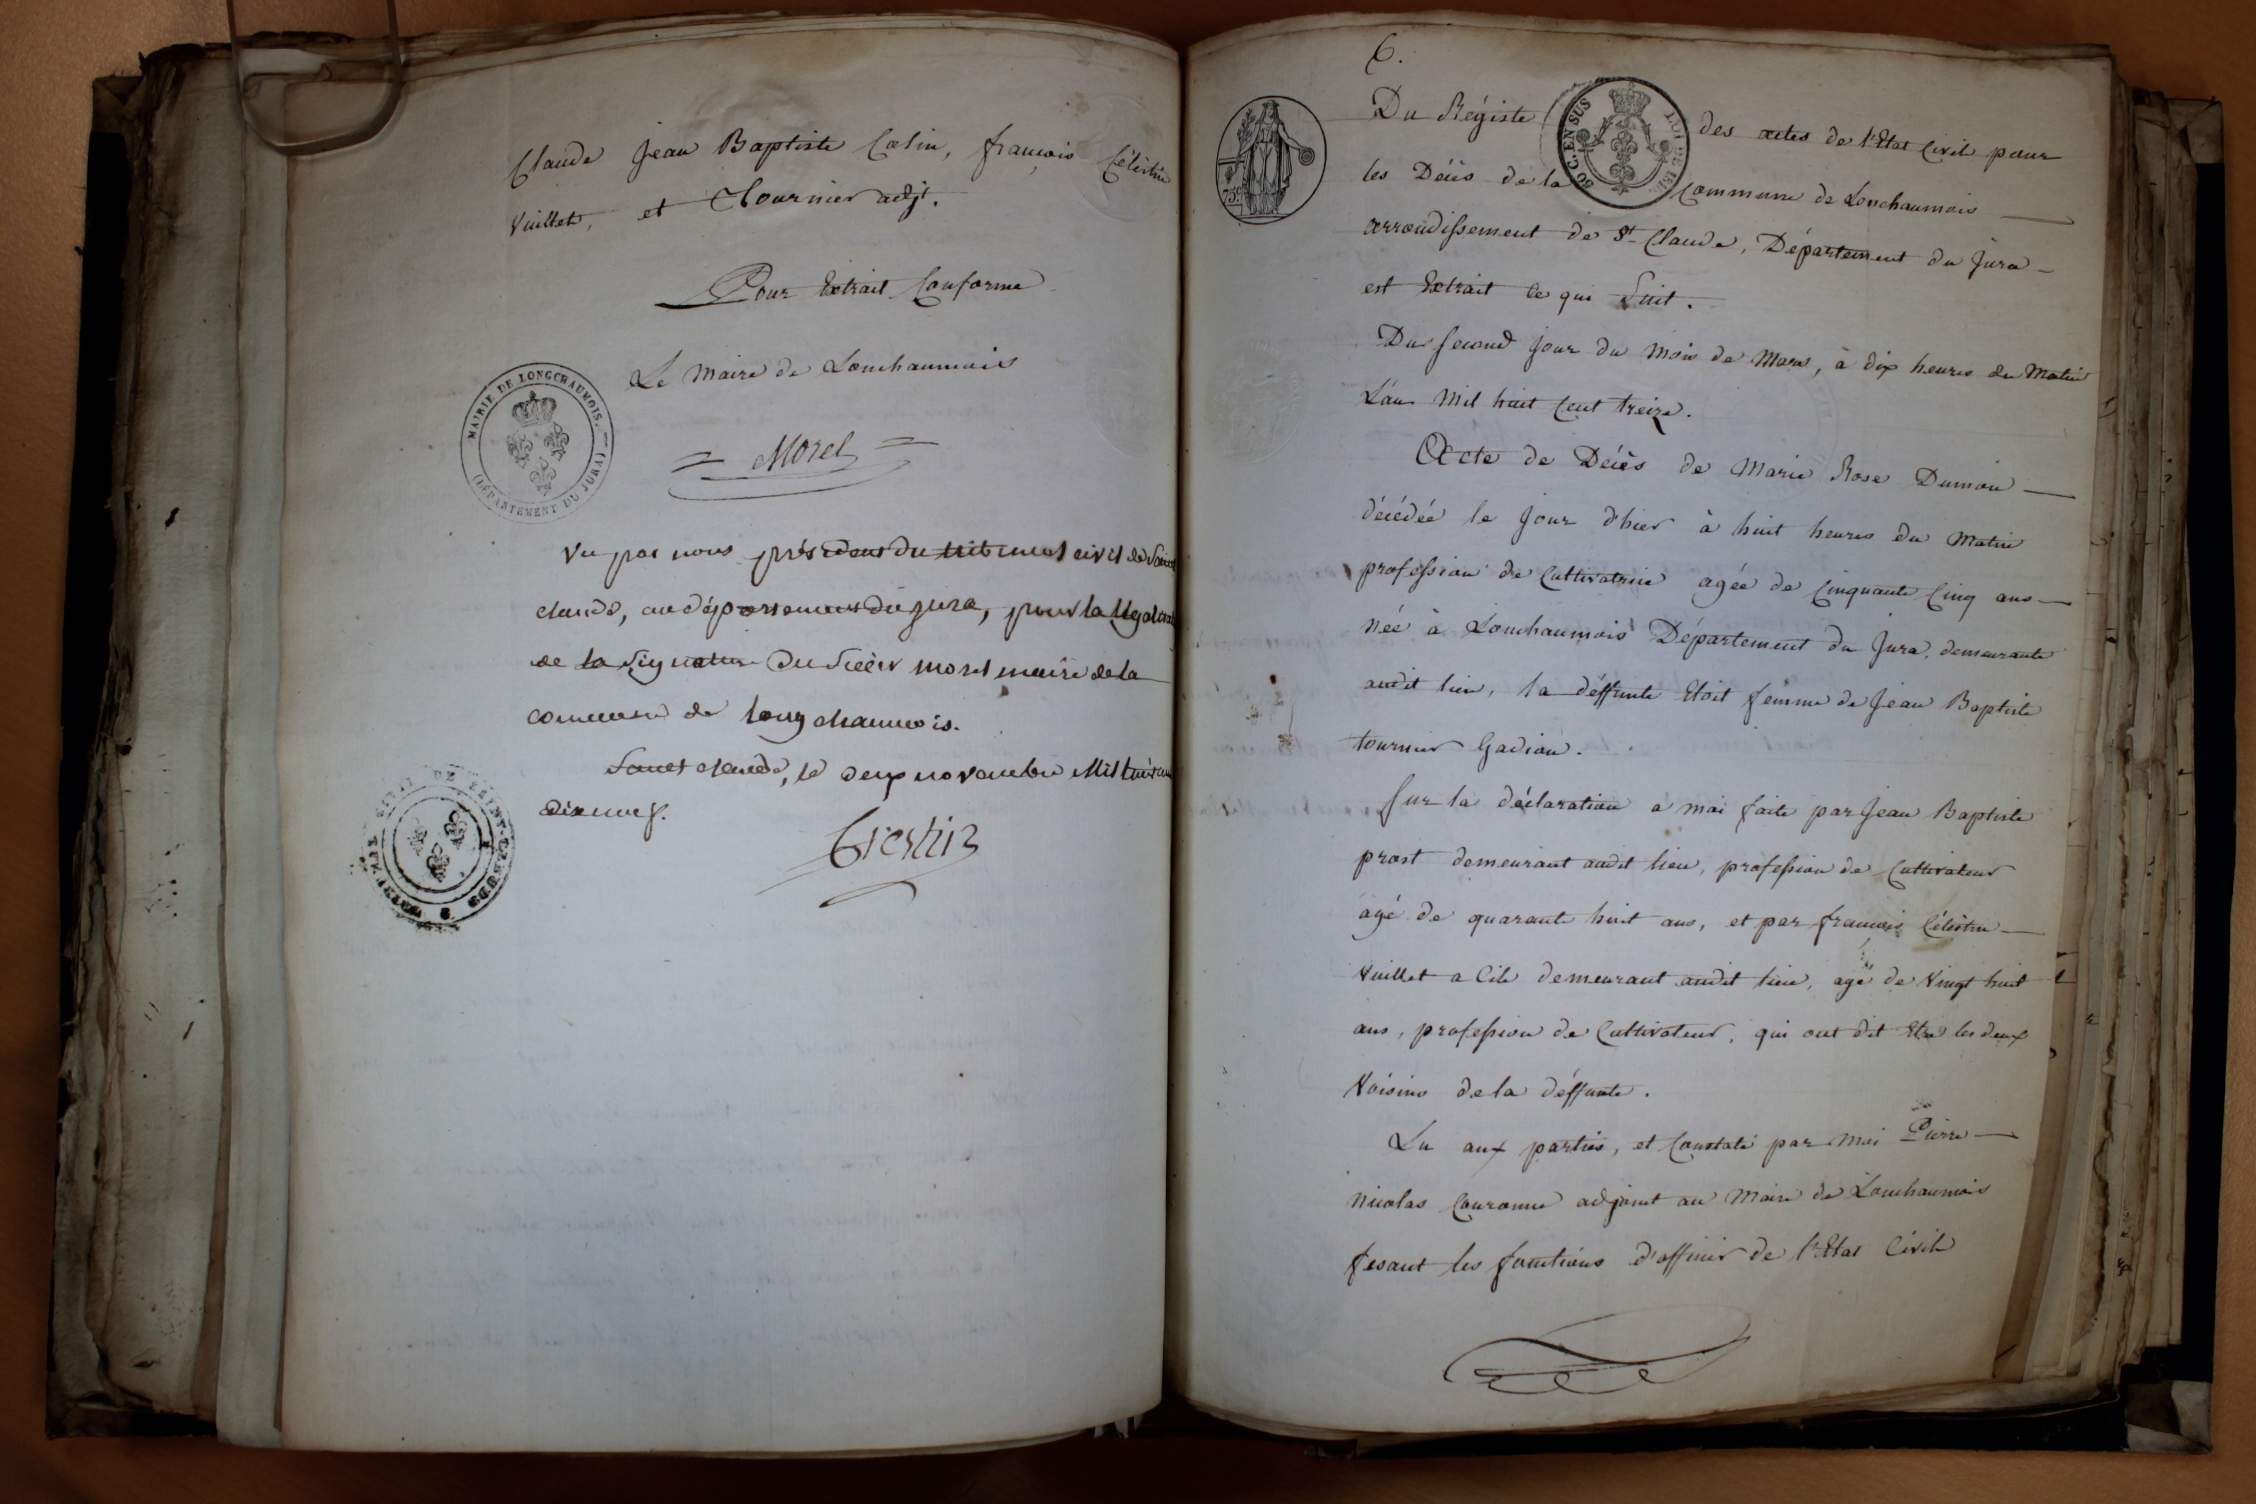 Claude Jean Baptiste Colin, françois Célestin
Vuillet, et Tournier adjt.
Pour Extrait Conforme
Le Maire de Lonchaumois
MAIRIE DE LONGCHAUMOIS.
(DÉPARTEMENT DU JURA)
Morel
Vu par nous président du tribunal civil de Saint
claude, au département du jura, pour la légalisati
de la Signature du Sieur morel maire de la
commune de longchaumois.
Saint claude, le deux novembre Mil huit cent
dixneuf.
6.
Du Régistre des actes de l'Etat Civil pour
50 C. EN SUS
75c
les Décès de la Commune de Lonchaumois
arrondissement de St Claude, Département du Jura
est Extrait ce qui Suit.
Du second jour du mois de Mars, à dix heures du Matin
L'an Mil huit Cent treize.
Acte de Décès de Marie Rose Dumon
décédée le jour d'hier à huit heures du Matin
profession de Cultivatrice agée de Cinquante Cinq ans
née à Lonchaumois Département du Jura, demeurante
audit lieu, la déffunte Etoit femme de Jean Baptiste
tournier Gadion.
Sur la déclaration a moi faite par Jean Baptiste
prost demeurant audit lieu, profession de Cultivateur
agé de quarante huit ans, et par françois Célestin
Vuillet a Cile demeurant audit lieu, agé de Vingt huit
ans, profession de Cultivateur, qui ont dit Etre les deux
Voisins de la déffunte.
Lu aux parties, et Constaté par moi Pierre
Nicolas Couronne adjoint au Maire de Lonchaumois
fesant les fonctions d'officier de l'Etat Civil